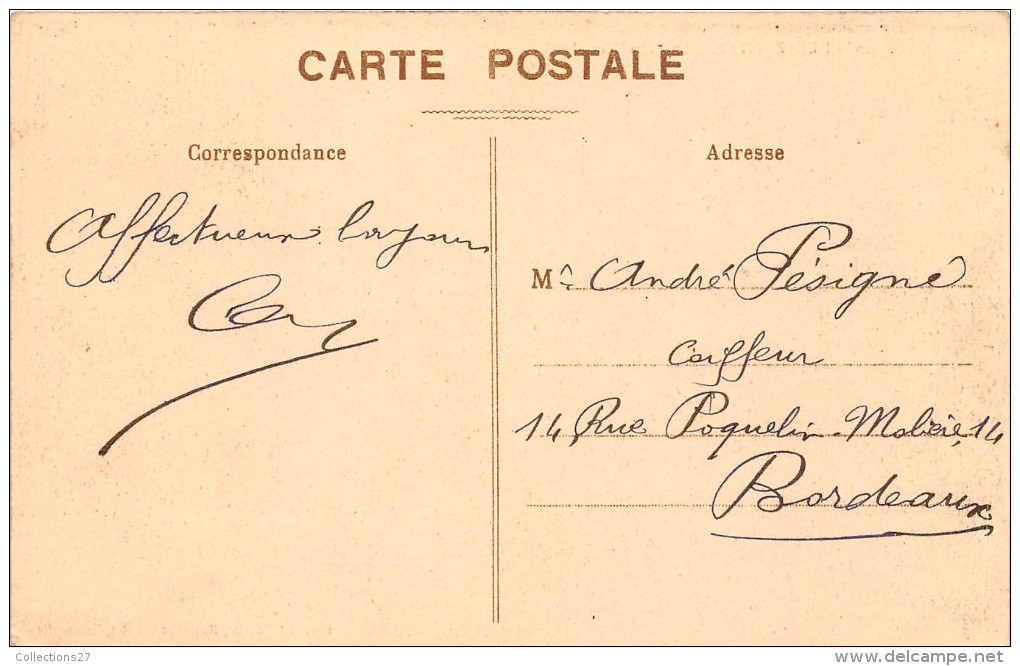 CARTE POSTALE
Correspondance
Affectueux
Adresse
Mr André Pésigné
Coiffeur
14 Rue Poquelin-Molière, 14
Bordeaux
Collections27
http://www.delcampe.net